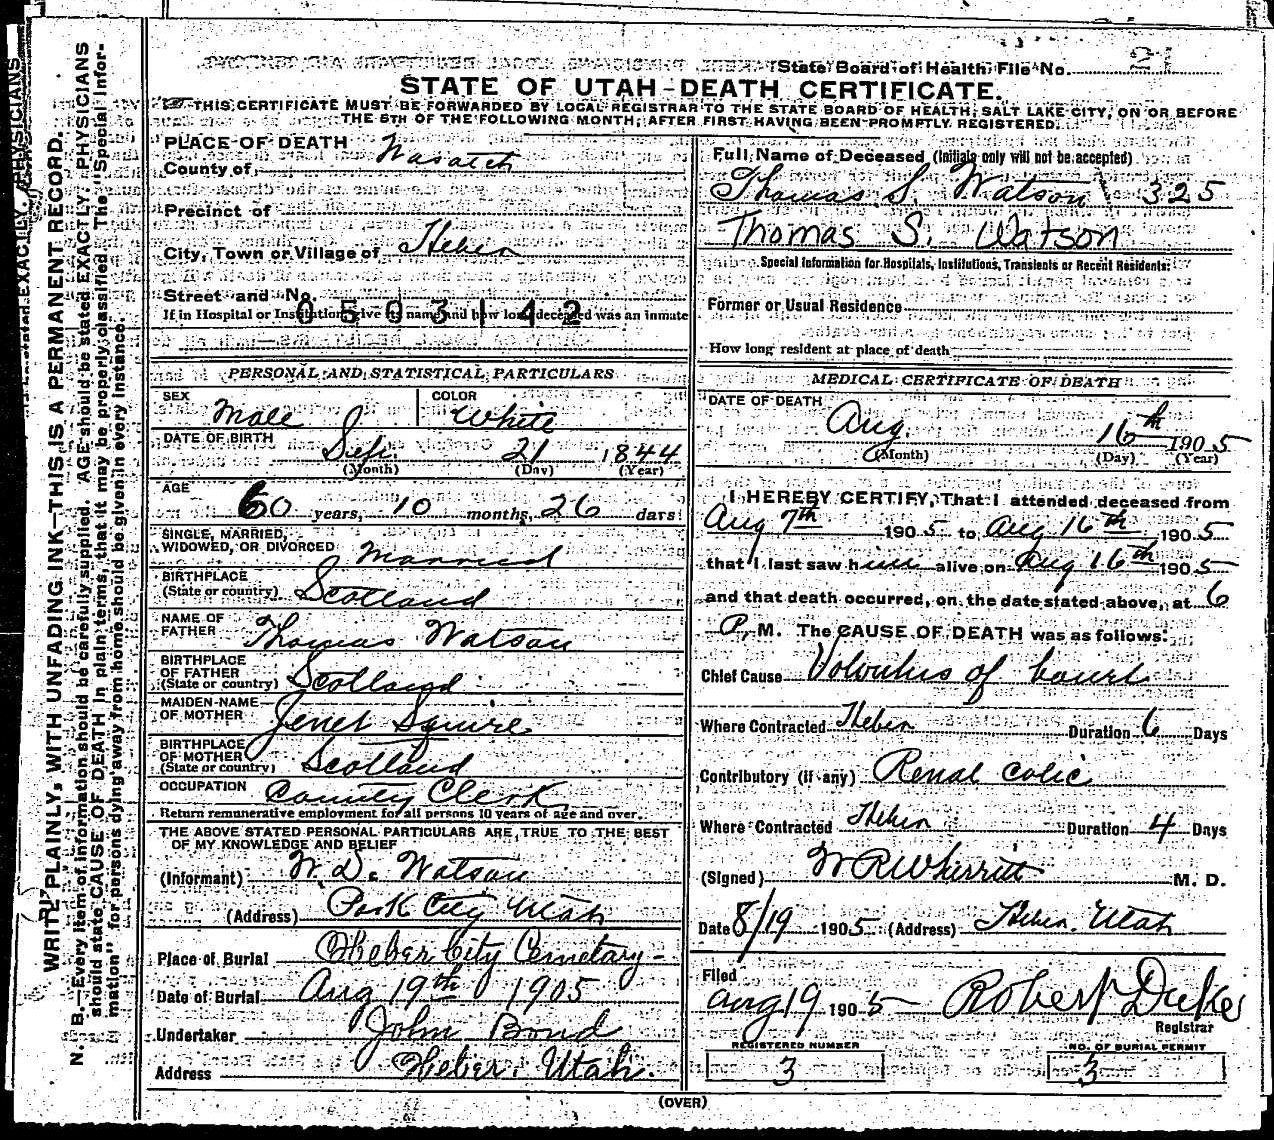 State Board of Health File No. 21
STATE OF UTAH-DEATH CERTIFICATE.
THIS CERTIFICATE MUST BE FORWARDED BY LOCAL REGISTRAR TO THE STATE BOARD OF HEALTH, SALT LAKE CITY, ON OR BEFORE
THE 5TH OF THE FOLLOWING MONTH, AFTER FIRST HAVING BEEN PROMPTLY REGISTERED.
PLACE OF DEATH
County of Wasatch
Precinct of
City, Town or Village of Heber
Street and No.
0503142
If in Hospital or Institution, give its name and how long deceased was an inmate
PERSONAL AND STATISTICAL PARTICULARS
SEX Male COLOR White
DATE OF BIRTH Sep. 21 1844
(Month) (Day) (Year)
AGE 60 years, 10 months, 26 days
SINGLE, MARRIED,
WIDOWED, OR DIVORCED Married
BIRTHPLACE
(State or country) Scotland
NAME OF
FATHER Thomas Watson
BIRTHPLACE
OF FATHER
(State or country) Scotland
MAIDEN-NAME
OF MOTHER Jenet Squire
BIRTHPLACE
OF MOTHER
(State or country) Scotland
OCCUPATION County Clerk
Return remunerative employment for all persons 10 years of age and over.
THE ABOVE STATED PERSONAL PARTICULARS ARE TRUE TO THE BEST
OF MY KNOWLEDGE AND BELIEF
(Informant) W. D. Watson
(Address) Park City Utah
Place of Burial Heber City Cemetary-
Date of Burial Aug 19th 1905
Undertaker John Bond
Address Heber, Utah.
Full Name of Deceased (Initials only will not be accepted)
Thomas S. Watson 325
Thomas S. Watson
Special Information for Hospitals, Institutions, Transients or Recent Residents:
Former or Usual Residence
How long resident at place of death
MEDICAL CERTIFICATE OF DEATH
DATE OF DEATH
Aug. 16th 1905
(Month) (Day) (Year)
I HEREBY CERTIFY, That I attended deceased from
Aug 7th 1905 to Aug 16th 1905
that I last saw him alive on Aug 16th 1905
and that death occurred, on the date stated above, at 6
P. M. The CAUSE OF DEATH was as follows:
Chief Cause Volvulus of bowel
Where Contracted Heber Duration 6 Days
Contributory (if any) Renal colic
Where Contracted Heber Duration 4 Days
(Signed) W R Wherritt M. D.
Date 8/19 1905 (Address) Heber. Utah
Filed
Aug 19 1905 Robert Duke
Registrar
REGISTERED NUMBER
3
NO. OF BURIAL PERMIT
3
(OVER)
WRITE PLAINLY, WITH UNFADING INK—THIS IS A PERMANENT RECORD.
N. B.—Every item of information should be carefully supplied. AGE should be stated EXACTLY. PHYSICIANS
should state CAUSE OF DEATH in plain terms, that it may be properly classified. The "Special Infor-
mation" for persons dying away from home should be given in every instance.